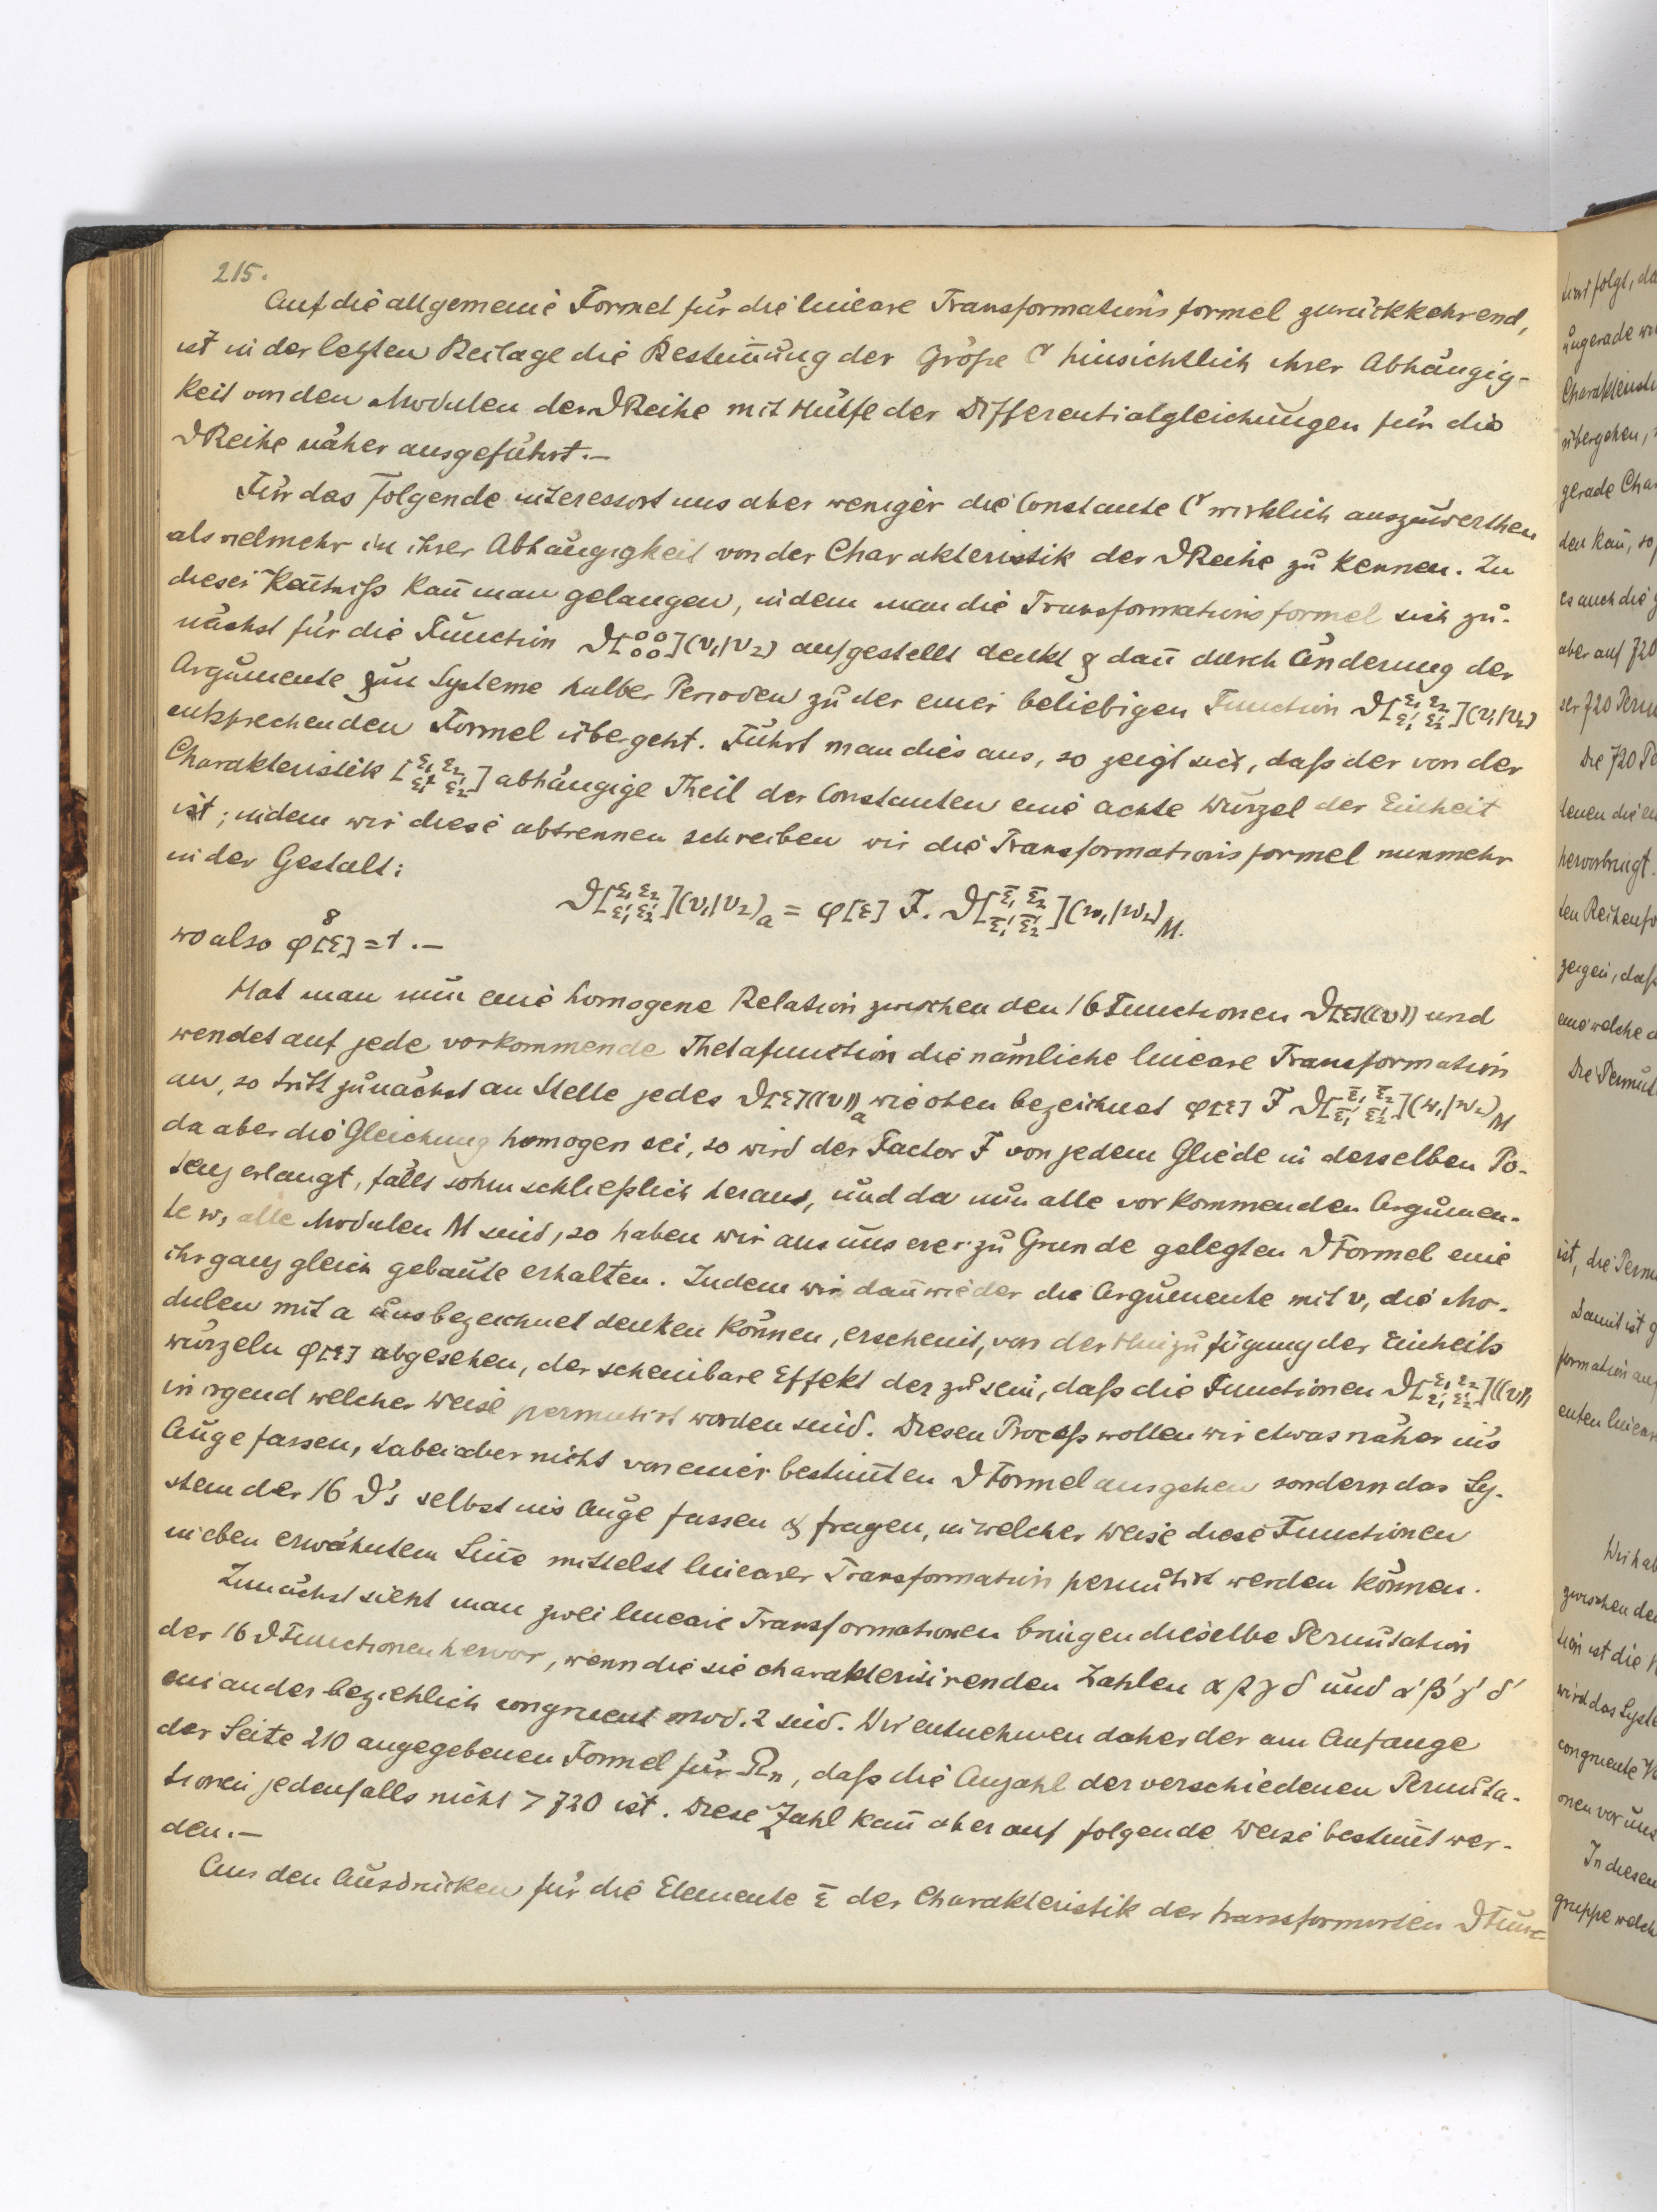 215.
Auf die allgemeine Formel für die lineare Transformationsformel zurückkehrend,
ist in der letzten Beilage die Bestim̅ung der Größe C hinsichtlich ihrer Abhängig-
keit von den Modulen der ϑReihe mit Hülfe der Differentialgleichungen für die
ϑReihe näher ausgeführt.—
Für das Folgende interessirt uns aber weniger die Constante C wirklich auszuwerthen
als vielmehr in ihrer Abhängigkeit von der Charakteristik der ϑReihe zu kennen. Zu
dieser Kentniß kan̅ man gelangen, indem man die Transformationsformel sich zu-
nächst für die Function ϑ[⁰⁰₀₀](v₁|v₂) aufgestellt denkt & dan̅ durch Änderung der
Argumente um Systeme halber Perioden zu der einer beliebigen Function ϑ[ε₁ ε₂ ε₁′ ε₂′](v₁|v₂)
entsprechenden Formel übergeht. Führt man dies aus, so zeigt sich, daß der von der
Charakteristik [ε₁ ε₂ ε₁′ ε₂′] abhängige Theil der Constanten eine achte Wurzel der Einheit
ist; indem wir diese abtrennen schreiben wir die Transformationsformel nunmehr
in der Gestalt:
ϑ[ε₁ ε₂ ε₁′ ε₂′](v₁|v₂)ₐ = φ[ε] F. ϑ[ε̄₁ ε̄₂ ε̄₁′ ε̄₂′](w₁|w₂)_M.
wo also φ⁸[ε] = 1.—
Hat man nun eine homogene Relation zwischen den 16 Functionen ϑ[ε]((v)) und
wendet auf jede vorkommende Thetafunction die nämliche lineare Transformation
an, so tritt zunächst an Stelle jedes ϑ[ε]((v))ₐ wie oben bezeichnet φ[ε] F ϑ[ε̄₁ ε̄₂ ε̄₁′ ε̄₂′](w₁|w₂)_M
da aber die Gleichung homogen sei, so wird der Factor F von jedem Gliede in derselben Po-
tenz erlangt, fällt sohin schließlich heraus, und da nun alle vorkommenden Argumen-
te w, alle Modulen M sind, so haben wir aus unserer zu Grunde gelegten ϑFormel eine
ihr ganz gleich gebaute erhalten. Indem wir dan̅ wieder die Argumente mit v, die Mo-
dulen mit a uns bezeichnet denken können, erscheint, von der Hinzufügung der Einheits
wurzeln φ[ε] abgesehen, der scheinbare Effekt der zu sein, daß die Functionen ϑ[ε₁ ε₂ ε₁′ ε₂′]((v))
in irgend welcher Weise permutirt worden sind. Diesen Proceß wollen wir etwas näher in's
Auge fassen, dabei aber nicht von einer bestim̅ten ϑFormel ausgehen sondern das Sy-
stem der 16 ϑ's selbst ins Auge fassen & fragen, in welcher Weise diese Functionen
in eben erwähntem Sin̅e mittelst linearer Transformation permutirt werden können.
Zunächst sieht man zwei lineare Transformationen bringen dieselbe Permutation
der 16 ϑFunctionen hervor, wenn die sie charakterisirenden Zahlen α β γ δ und α′ β′ γ′ δ′
einander beziehlich congruent mod. 2 sind. Wir entnehmen daher der am Anfange
der Seite 210 angegebenen Formel für Rₙ, daß die Anzahl der verschiedenen Permuta-
tionen jedenfalls nicht > 720 ist. Diese Zahl kan̅ aber auf folgende Weise bestim̅t wer-
den.—
Aus den Ausdrücken für die Elemente ε̄ der Charakteristik der transformirten ϑFunc-